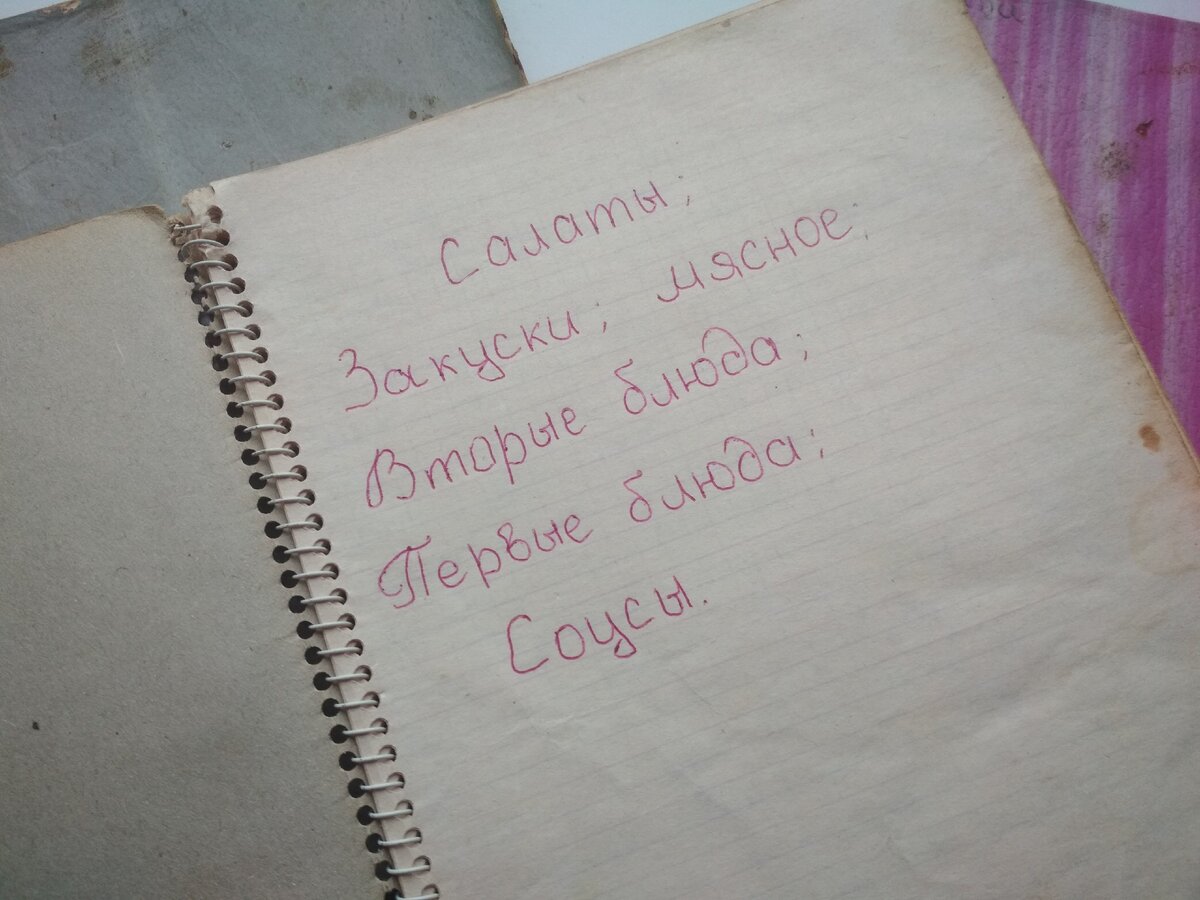 Салаты;
Закуски; мясное;
Вторые блюда;
Первые блюда;
Соусы.